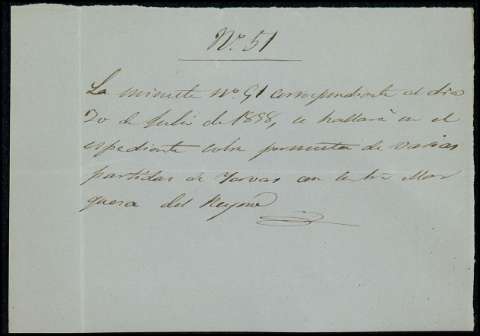 Nº 51
La minuta Nº 91 correspondiente al dia
20 de Julio de 1858, se hallará en el
espediente sobre permuta de varias
partidas de
del Reyno